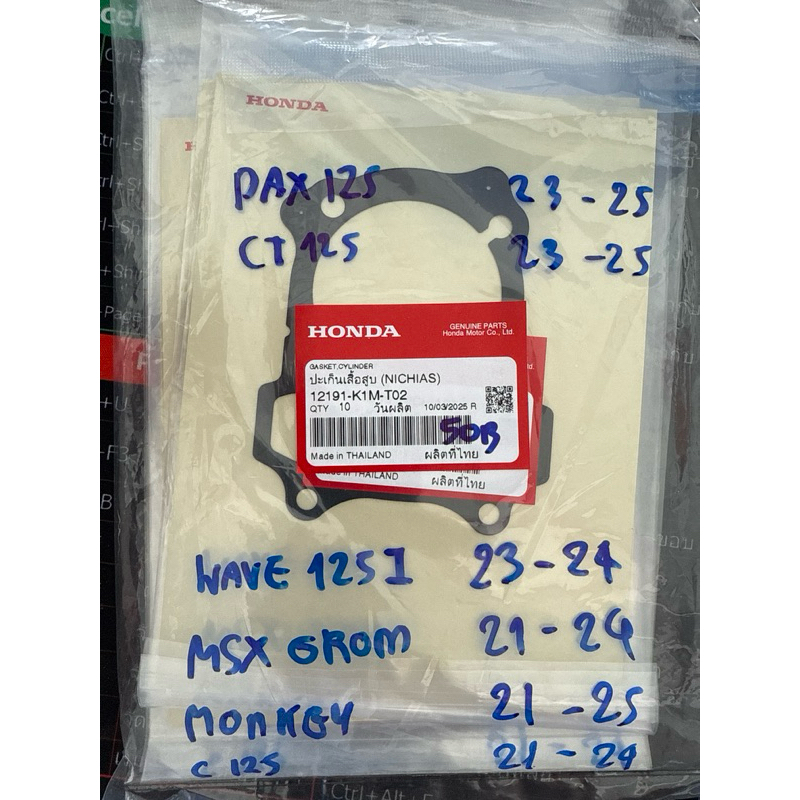 HONDA
DAX 125 23 - 25
CT 125 23 - 25
HONDA GENUINE PARTS
Honda Motor Co., Ltd.
GASKET,CYLINDER
ปะเก็นเสื้อสูบ (NICHIAS)
12191-K1M-T02
QTY 10 วันผลิต 10/03/2025 R
50B
Made in THAILAND ผลิตที่ไทย
THAILAND ผลิตที่ไทย
WAVE 125I 23 - 24
MSX GROM 21 - 24
MONKEY 21 - 25
C 125 21 - 24
Ctrl+Alt+F